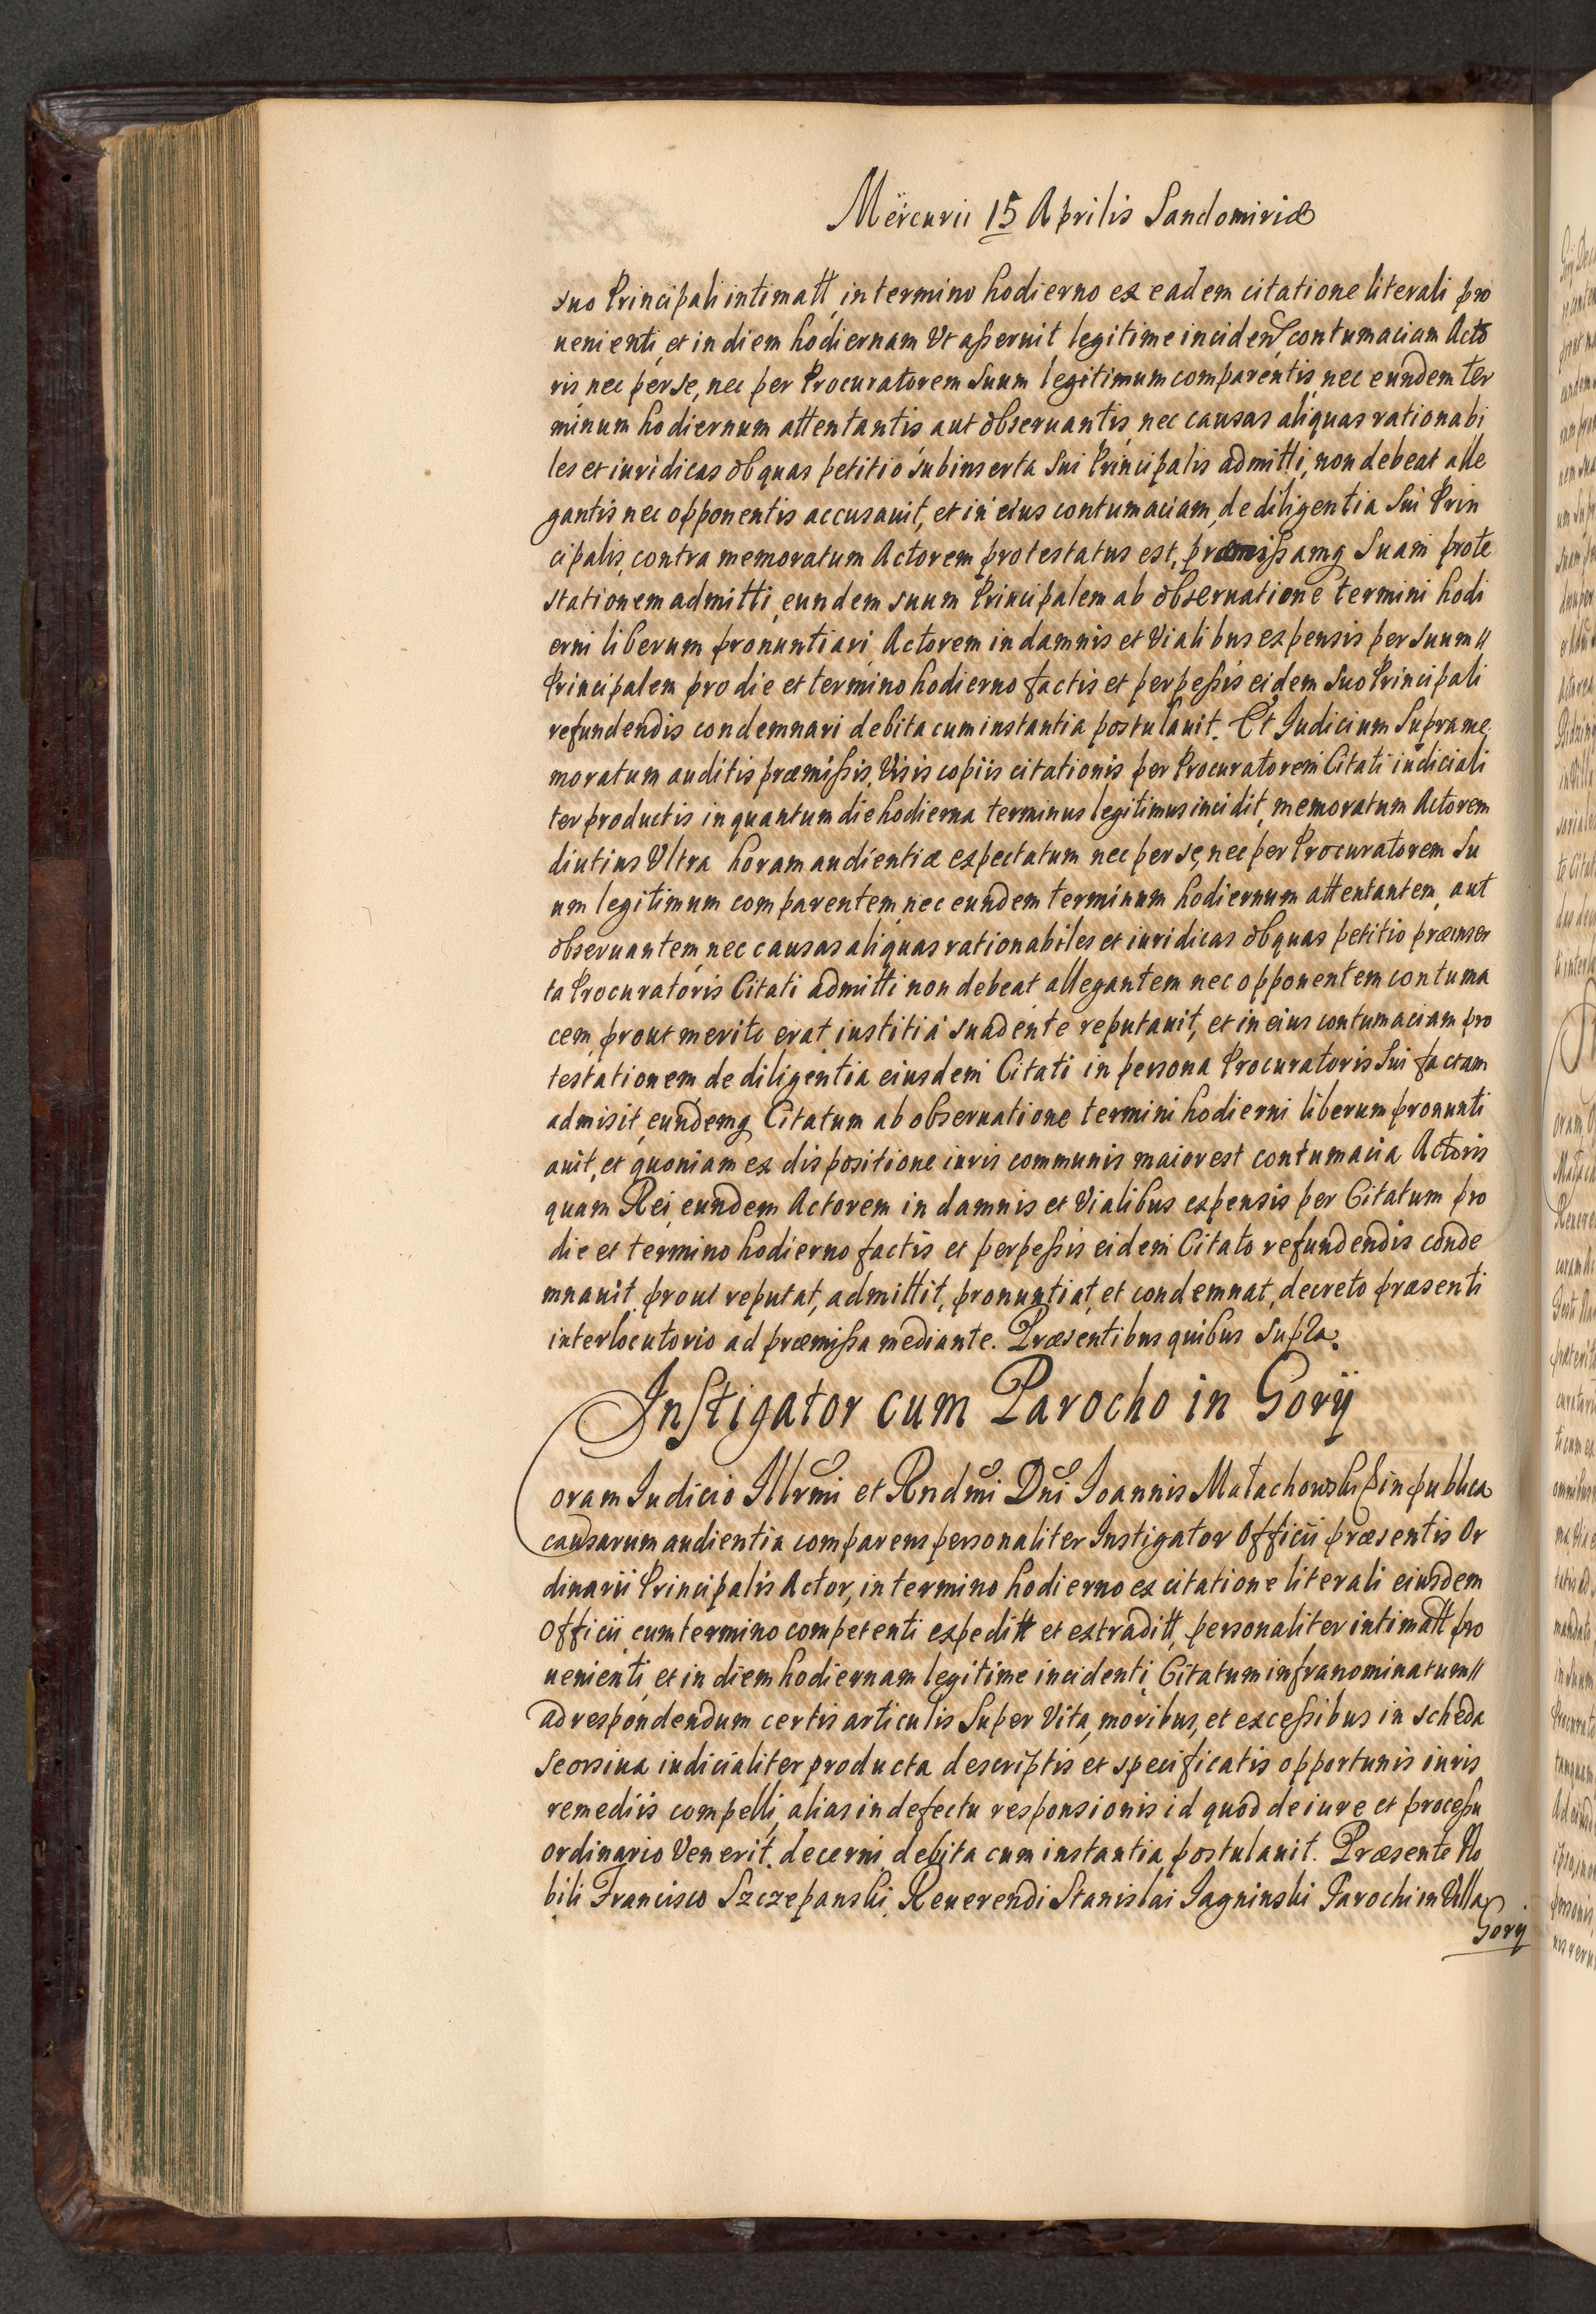 Mercurii 15 Aprilis Sandomiriæ
suo Principali intimatt, in termino hodierno ex eadem citatione literali pro
uenienti, et in diem hodiernam Vt aßeruit legitime inciden contumaciam Acto
ris nec per se, nec per Procuratorem Suum legitimum comparentis, nec eundem ter
minum hodiernum attentantis aut obseruantis, nec causas aliquas rationabi
les et iuridicas ob quas petitio subinserta Sui Principalis admitti, non debeat alle
gantis nec opponentis accusauit, et in eius contumaciam, de diligentia Sui Prin
cipalis, contra memoratum Actorem protestatus est, præmißamq Suam prote
stationem admitti, eundem suum Principalem ab obseruatione termini hodi
erni liberum pronuntiari, Actorem in damnis et Vialibus expensis per Suum //
Principalem pro die et termino hodierno factis et perpeßis eidem Suo Principali
refundendis condemnari debita cum instantia postulauit. Et Iudicium Suprame
moratum auditis præmißis, Visis copiis citationis per Procuratorem Citati iudiciali
ter productis in quantum die hodierna terminus legitimus incidit, memoratum Actorem
diutius Vltra horam audientiæ expectatum nec per se, nec per Procuratorem Su
um legitimum comparentem, nec eundem terminum hodiernum attentantem, aut
obseruantem, nec causas aliquas rationabiles et iuridicas ob quas petitio præinser
ta Procuratoris Citati admitti non debeat allegantem nec opponentem contuma
cem, prout merito erat iustitia suadente reputauit, et in eius contumaciam pro
testationem de diligentia eiusdem Citati in persona Procuratoris Sui factam
admisit, eundemq Citatum ab obseruatione termini hodierni liberum pronunti
auit, et quoniam ex dispositione iuris communis maior est contumacia Actoris
quam Rei, eundem Actorem in damnis et Vialibus expensis per Citatum pro
die et termino hodierno factis et perpeßis eidem Citato refundendis conde
mnauit prout reputat, admittit, pronuntiat, et condemnat, decreto præsenti
interlocutorio ad præmißa mediante. Præsentibus quibus Supra.
Instigator cum Parocho in Gorÿ
Coram Iudicio Illrmi et Rndmi Dni Ioannis Małachowski in publica
causarum audientia comparens personaliter Instigator Officii præsentis Or
dinarii Principalis Actor, in termino hodierno ex citatione literali eiusdem
Officii cum termino competenti expeditt et extraditt, personaliter intimatt pro
uenienti, et in diem hodiernam legitime incidenti, Citatum infranominatum //
ad respondendum certis articulis Super Vita, moribus, et exceßibus in scheda
Seorsiua iudicialiter producta descriptis et specificatis opportunis iuris
remediis compelli, alias in defectu responsionis id quod de iure et proceßu
ordinario Venerit. decerni debita cum instantia postulauit. Præsente No
bili Francisco Szczepanski, Reuerendi Stanislai Jagninski Parochi in Villa
Gorÿ